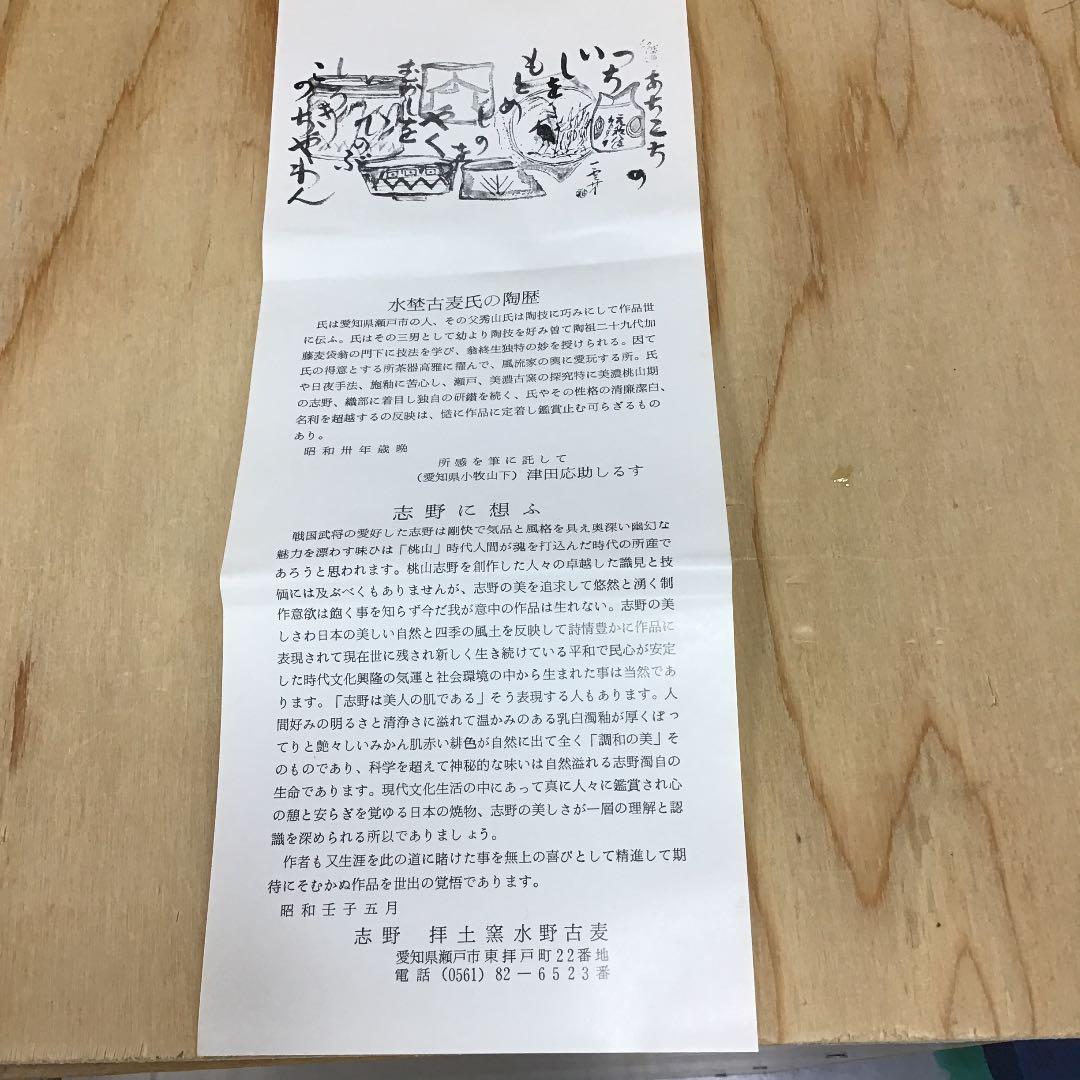 あちこちの
つち
いし
もとめ
もの
やく
むかしを
しのぶ
こきの
ちやわん
水埜古麦氏の陶歴
氏は愛知県瀬戸市の人、その父秀山氏は陶技に巧みにして作品世
に伝ふ。氏はその三男として幼より陶技を好み曽て陶祖二十九代加
藤麦袋翁の門下に技法を学び、翁終生独特の妙を授けられる。因て
氏の得意とする所茶器高雅に擢んで、風流家の輿に愛玩する所。氏
や日夜手法、施釉に苦心し、瀬戸、美濃古窯の探究特に美濃桃山期
の志野、織部に着目し独自の研鑽を続く、氏やその性格の清廉潔白、
名利を超越するの反映は、慥に作品に定着し鑑賞止む可らざるもの
あり。
昭和卅年歳晩
所感を筆に託して
(愛知県小牧山下) 津田応助しるす
志野に想ふ
戦国武将の愛好した志野は剛快で気品と風格を具え奥深い幽幻な
魅力を漂わす味ひは「桃山」時代人間が魂を打込んだ時代の所産で
あろうと思われます。桃山志野を創作した人々の卓越した識見と技
倆には及ぶべくもありませんが、志野の美を追求して悠然と湧く制
作意欲は飽く事を知らず今だ我が意中の作品は生れない。志野の美
しさわ日本の美しい自然と四季の風土を反映して詩情豊かに作品に
表現されて現在世に残され新しく生き続けている平和で民心が安定
した時代文化興隆の気運と社会環境の中から生まれた事は当然であ
ります。「志野は美人の肌である」そう表現する人もあります。人
間好みの明るさと清浄さに溢れて温かみのある乳白濁釉が厚くぽっ
てりと艶々しいみかん肌赤い緋色が自然に出て全く「調和の美」そ
のものであり、科学を超えて神秘的な味いは自然溢れる志野濁自の
生命であります。現代文化生活の中にあって真に人々に鑑賞され心
の憩と安らぎを覚ゆる日本の焼物、志野の美しさが一層の理解と認
識を深められる所以でありましょう。
作者も又生涯を此の道に賭けた事を無上の喜びとして精進して期
待にそむかぬ作品を世出の覚悟であります。
昭和壬子五月
志野 拝土窯水野古麦
愛知県瀬戸市東拝戸町22番地
電話 (0561) 82-6523番